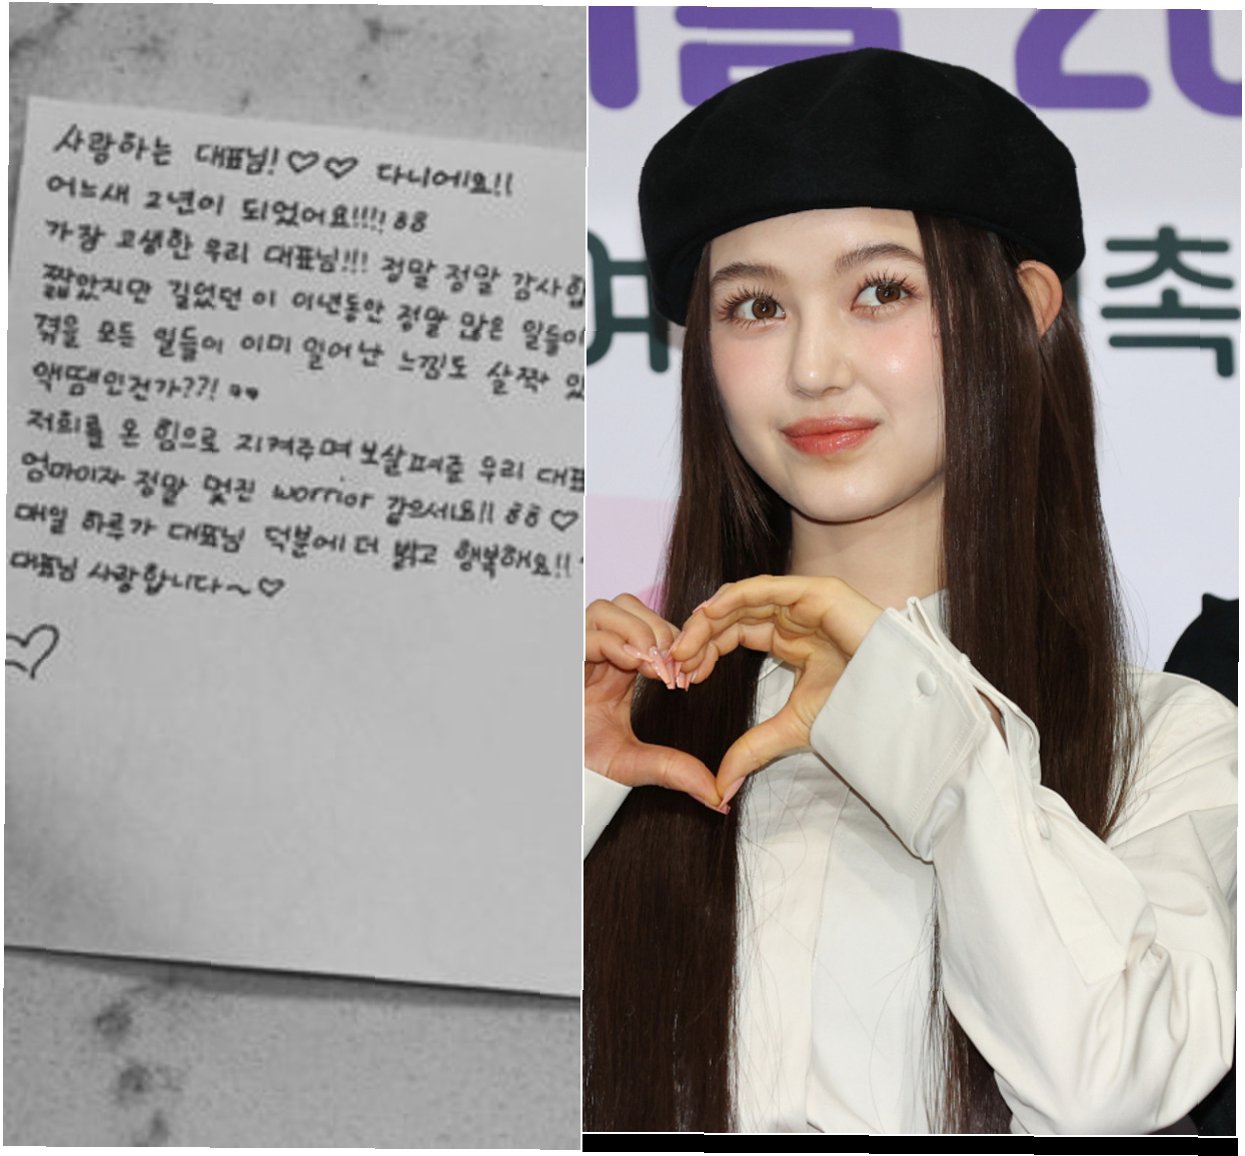 사랑하는 대표님!♡♡ 다니에요!!
어느새 2년이 되었어요!!!! ㅎㅎ
가장 고생한 우리 대표님!!! 정말 정말 감사합
짧았지만 길었던 이 이년동안 정말 많은 일들이
겪을 모든 일들이 이미 일어난 느낌도 살짝 있
액땜인건가??!
저희를 온 힘으로 지켜주며 보살펴준 우리 대표
엄마이자 정말 멋진 worrior 같으세요!! ㅎㅎ ♡
매일 하루가 대표님 덕분에 더 밝고 행복해요!!
대표님 사랑합니다~♡
20
여
촉